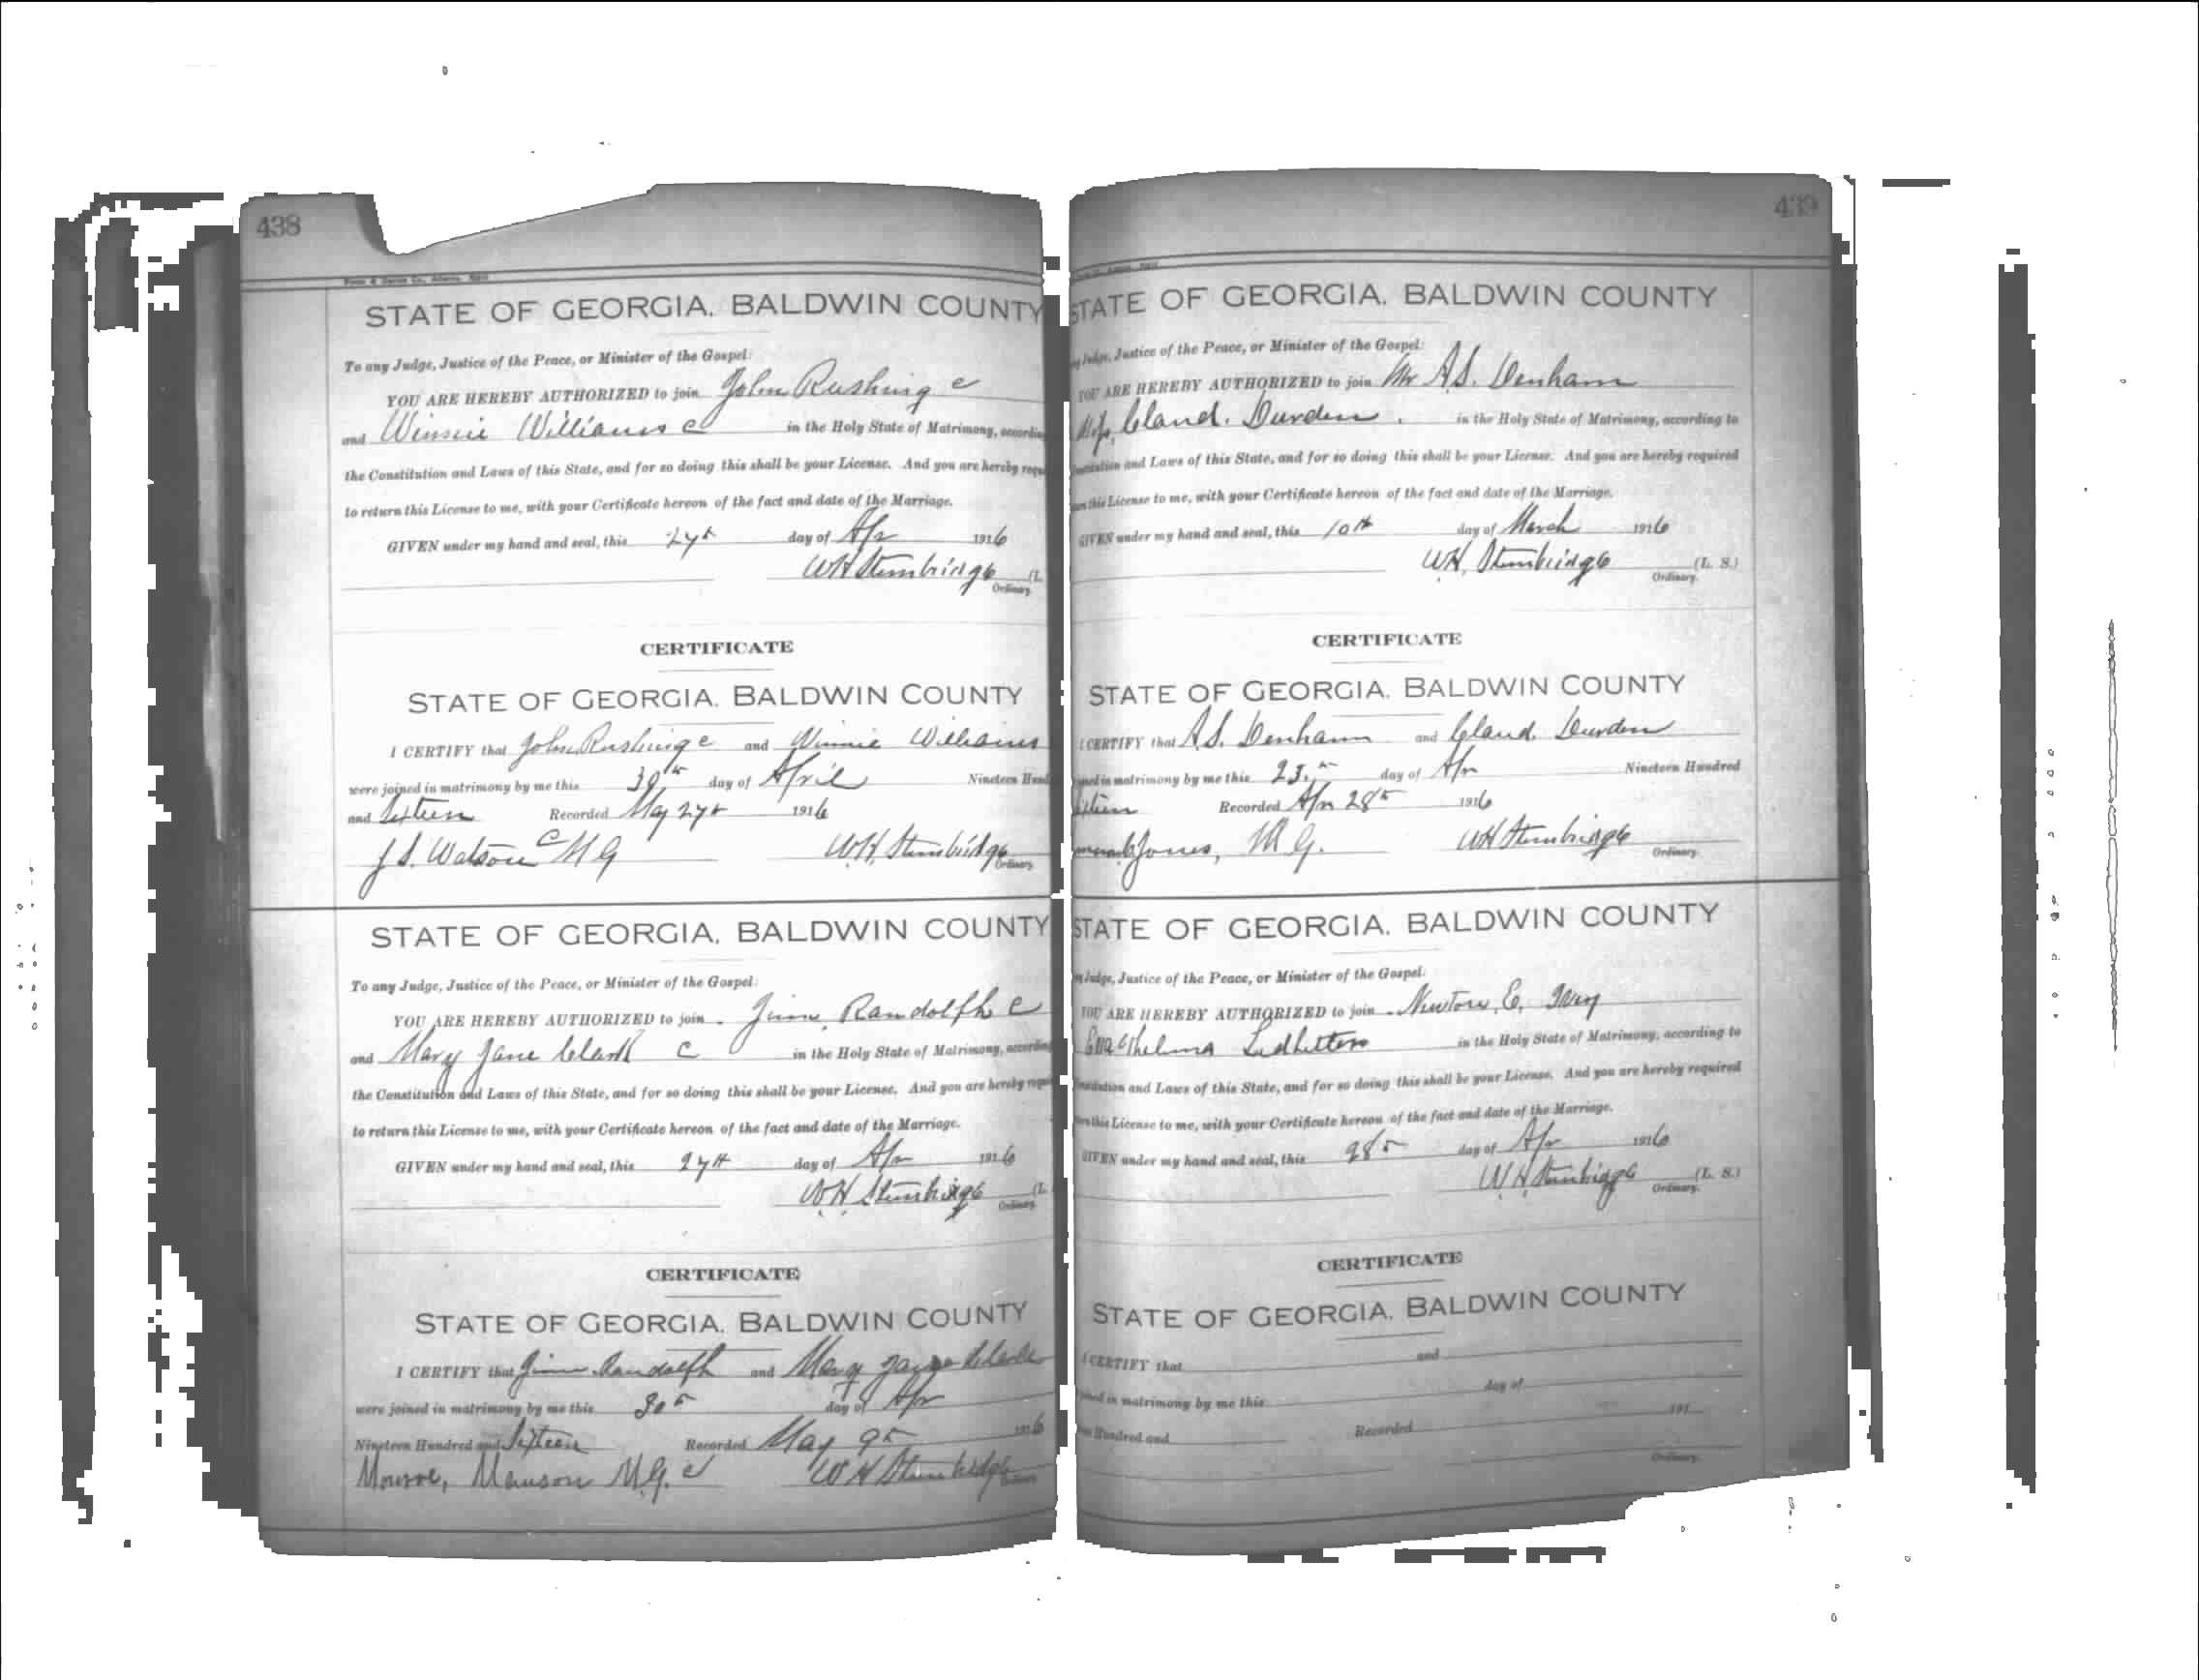 438
STATE OF GEORGIA, BALDWIN COUNTY
To any Judge, Justice of the Peace, or Minister of the Gospel:
YOU ARE HEREBY AUTHORIZED to join John Rushing c
and Winnie Williams c in the Holy State of Matrimony, accordin
the Constitution and Laws of this State, and for so doing this shall be your License. And you are hereby requ
to return this License to me, with your Certificate hereon of the fact and date of the Marriage.
GIVEN under my hand and seal, this 27th day of Apr 1916
WH Stembridge (L.
Ordinary.
CERTIFICATE
STATE OF GEORGIA, BALDWIN COUNTY
I CERTIFY that John Rushing c and Winnie Williams
were joined in matrimony by me this 30th day of April Nineteen Hund
and Sixteen Recorded May 27th 1916
J.S. Watson c M G W.H. Stembridge
Ordinary.
STATE OF GEORGIA, BALDWIN COUNTY
To any Judge, Justice of the Peace, or Minister of the Gospel:
YOU ARE HEREBY AUTHORIZED to join Jim Randolph c
and Mary Jane Clark c in the Holy State of Matrimony, according
the Constitution and Laws of this State, and for so doing this shall be your License. And you are hereby requi
to return this License to me, with your Certificate hereon of the fact and date of the Marriage.
GIVEN under my hand and seal, this 27th day of Apr 1916
W.H. Stembridge (L.
Ordinary.
CERTIFICATE
STATE OF GEORGIA, BALDWIN COUNTY
I CERTIFY that Jim Randolph and Mary Jane Clark
were joined in matrimony by me this 30th day of Apr
Nineteen Hundred and Sixteen Recorded May 9th 1916
Monroe, Manson M.G. c W H Stembridge
439
STATE OF GEORGIA, BALDWIN COUNTY
Judge, Justice of the Peace, or Minister of the Gospel:
YOU ARE HEREBY AUTHORIZED to join Mr A.S. Denham
Cland. Durden. in the Holy State of Matrimony, according to
and Laws of this State, and for so doing this shall be your License. And you are hereby required
this License to me, with your Certificate hereon of the fact and date of the Marriage.
GIVEN under my hand and seal, this 10th day of March 1916
W.H. Stembridge (L. S.)
Ordinary.
CERTIFICATE
STATE OF GEORGIA, BALDWIN COUNTY
I CERTIFY that A.S. Denham and Cland. Durden
in matrimony by me this 23rd day of Apr Nineteen Hundred
Recorded Apr 28th 1916
Jones, M.G. WH Stembridge
Ordinary.
STATE OF GEORGIA, BALDWIN COUNTY
Judge, Justice of the Peace, or Minister of the Gospel:
YOU ARE HEREBY AUTHORIZED to join Newton, E. Ivey
Thelma Ledbetter in the Holy State of Matrimony, according to
and Laws of this State, and for so doing this shall be your License. And you are hereby required
this License to me, with your Certificate hereon of the fact and date of the Marriage.
GIVEN under my hand and seal, this 28th day of Apr 1916
W.H. Stembridge (L. S.)
Ordinary.
CERTIFICATE
STATE OF GEORGIA, BALDWIN COUNTY
I CERTIFY that and
in matrimony by me this day of
Hundred and Recorded 191
Ordinary.